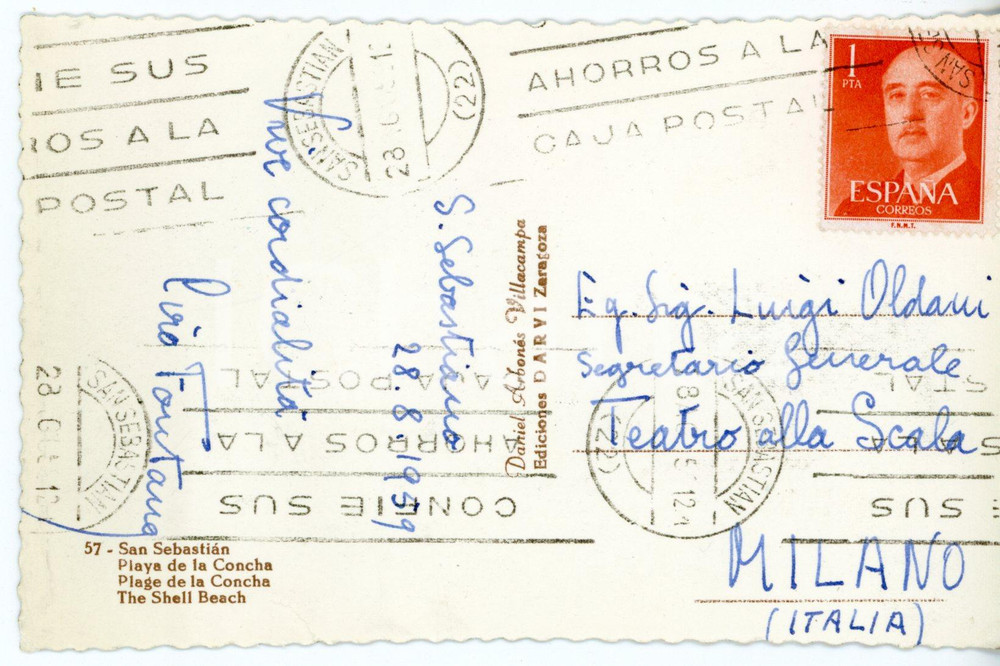 CONFIE SUS
AHORROS A LA
CAJA POSTAL
IE SUS
ROS A LA
POSTAL
SAN SEBASTIAN
(22)
AHORROS A LA
CAJA POSTAL
1
PTA
ESPAÑA
CORREOS
F.N.M.T.
S. Sebastiano
28.8.1959
Vive cordialità
Piero Fontana
Daniel Arbonés Villacampa
Ediciones DARVI Zaragoza
Eg. Sig. Luigi Oldani
Segretario Generale
Teatro alla Scala
MILANO
(ITALIA)
SAN SEBASTIAN
SAN SEBASTIAN
(22)
AHORROS A LA
CONFIE SUS
SUS
57 - San Sebastián
Playa de la Concha
Plage de la Concha
The Shell Beach